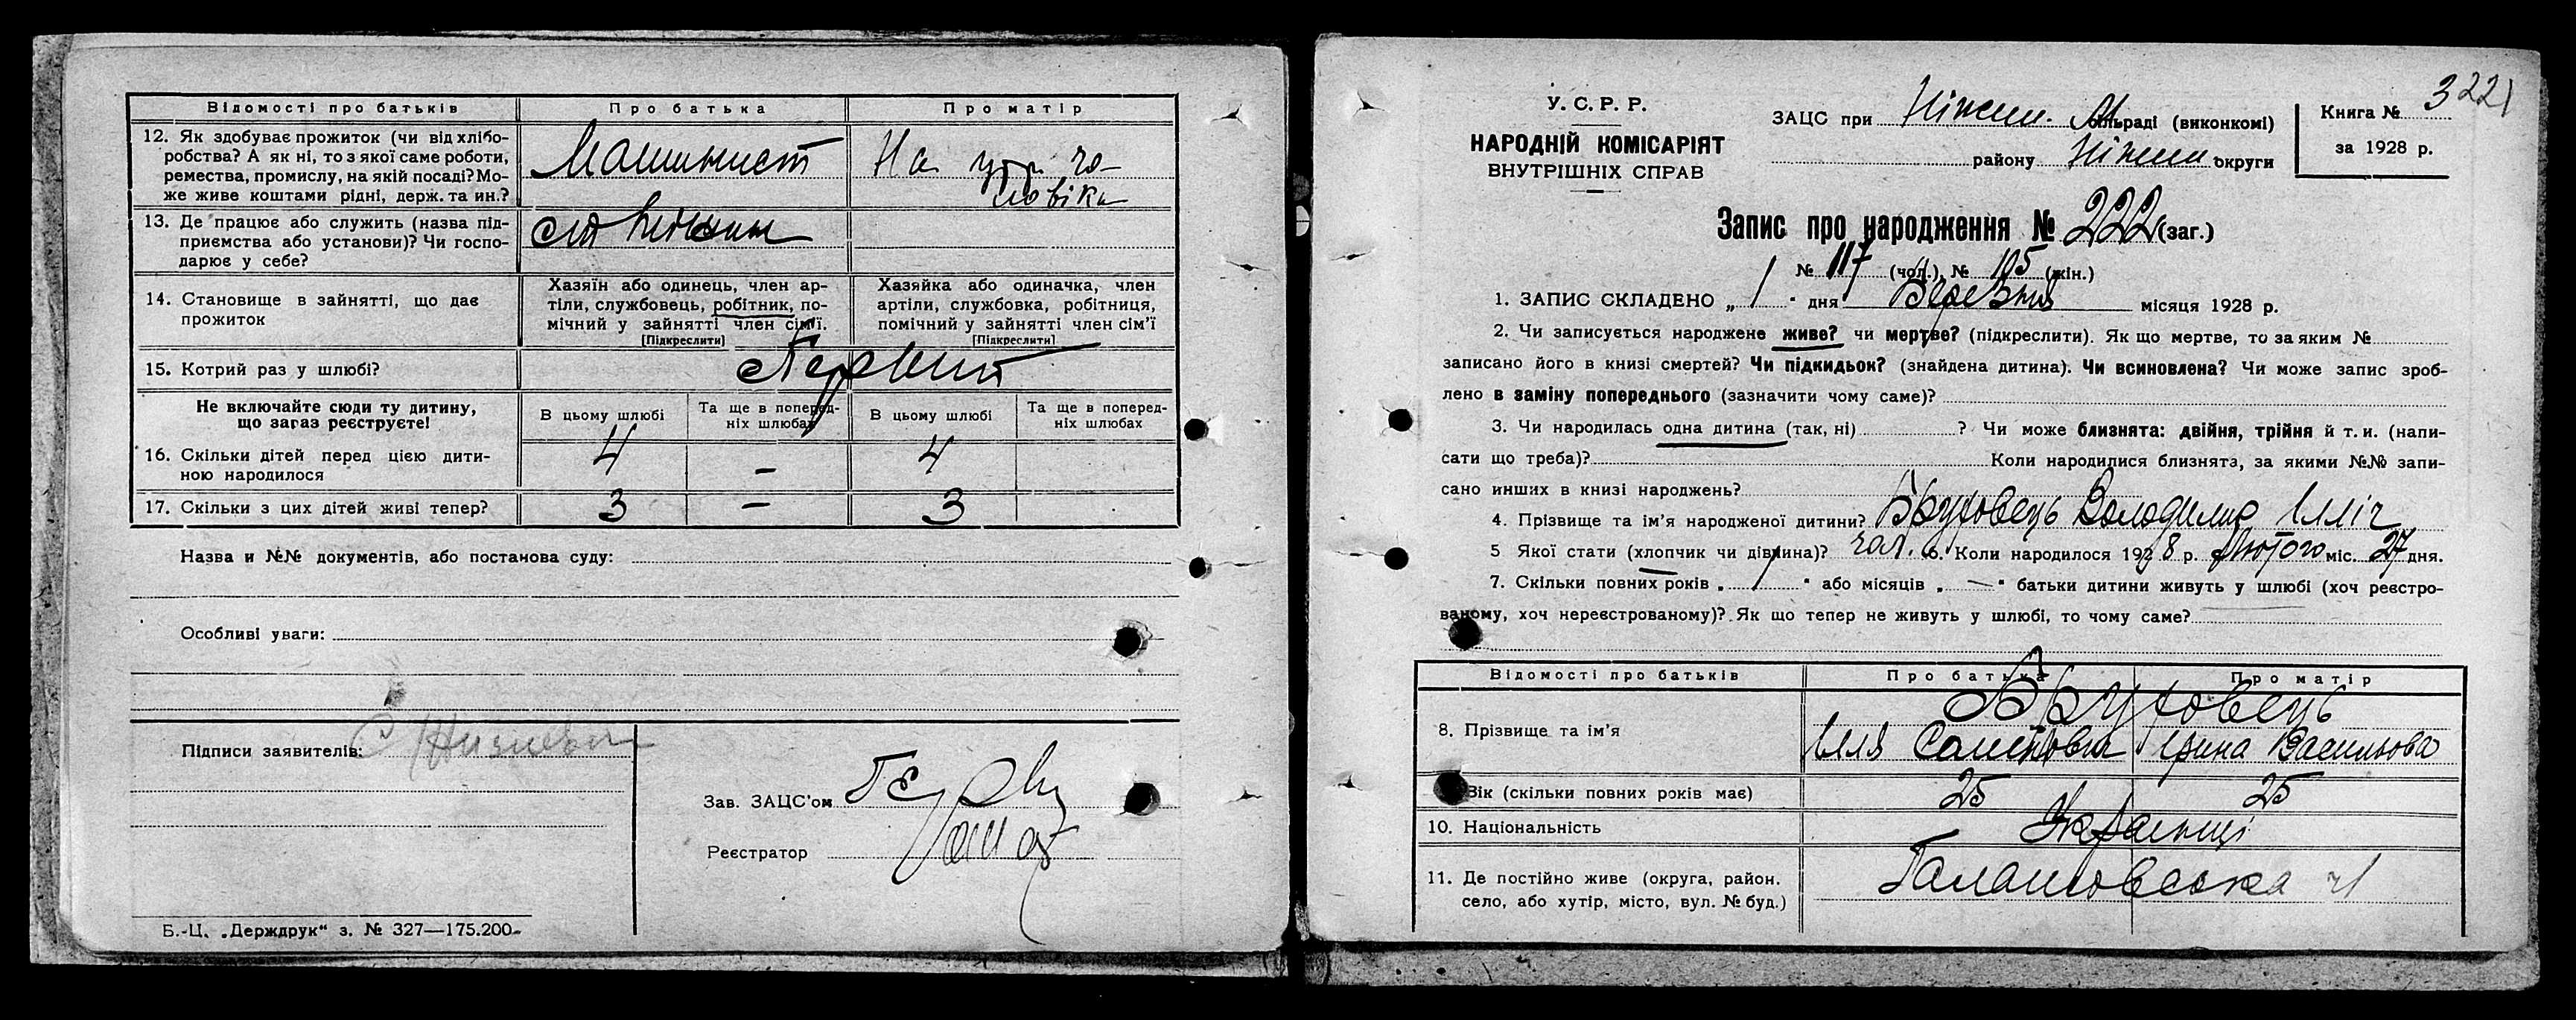 Відомості про батьків Про батька Про матір
12. Як здобуває прожиток (чи від хлібо-
робства? А як ні, то з якої саме роботи,
ремества, промислу, на якій посаді? Мо-
же живе коштами рідні, держ. та ин.?
Машинист
На утр. чо-
ловіка
13. Де працює або служить (назва під-
приємства або установи)? Чи госпо-
дарює у себе?
ст
14. Становище в зайнятті, що дає
прожиток
Хазяїн або одинець, член ар-
тіли, службовець, робітник, по-
мічний у зайнятті член сім'ї.
[Підкреслити]
Хазяйка або одиначка, член
артіли, службовка, робітниця,
помічний у зайнятті член сім'ї
[Підкреслити]
15. Котрий раз у шлюбі?
Не включайте сюди ту дитину,
що загаз реєструєте!
В цьому шлюбі
Та ще в поперед-
ніх шлюбах
В цьому шлюбі
Та ще в поперед-
ніх шлюбах
16. Скільки дітей перед цією дити-
ною народилося
4 – 4
17. Скільки з цих дітей живі тепер? 3 – 3
Назва и №№ документів, або постанова суду:
Особливі уваги:
Підписи заявителів:
Зав. ЗАЦС'ом
Реєстратор
Б.-Ц. „Держдрук“ з. № 327—175.200
У. С. Р. Р.
НАРОДНІЙ КОМІСАРІЯТ
ВНУТРІШНІХ СПРАВ
ЗАЦС при Ніжин. М ільраді (виконкомі)
району Ніжин округи
Книга № 3
221
за 1928 р.
Запис про народження № 222 (заг.)
№ 117 (чол.), № 105 (жін.)
1. ЗАПИС СКЛАДЕНО „ 1 “ дня Березня місяця 1928 р.
2. Чи записується народжене живе? чи мертве? (підкреслити). Як що мертве, то за яким №
записано його в книзі смертей? Чи підкидьок? (знайдена дитина). Чи всиновлена? Чи може запис зроб-
лено в заміну попереднього (зазначити чому саме)?
3. Чи народилась одна дитина (так, ні) ? Чи може близнята: двійня, трійня й т. и. (напи-
сати що треба)? Коли народилися близнята, за якими №№ запи-
сано инших в книзі народжень?
4. Прізвище та ім'я народженої дитини? Бруховець Володимир Ілліч
5 Якої стати (хлопчик чи дівчина)? чол. 6. Коли народилося 1928 р. Лютого міс. 27 дня.
7. Скільки повних років „ / “ або місяців „ — “ батьки дитини живуть у шлюбі (хоч реєстро-
ваному, хоч нереєстрованому)? Як що тепер не живуть у шлюбі, то чому саме?
Відомості про батьків Про батька Про матір
8. Прізвище та ім'я
Бруховець
Ілля Ірина Васильова
Вік (скільки повних років має) 25 25
10. Національність Українці
11. Де постійно живе (округа, район.
село, або хутір, місто, вул. № буд.)